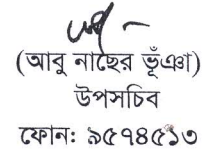 (আবু নাছের ভূঁঞা)
উপসচিব
ফোন: ৯৫৭৪৫১৩